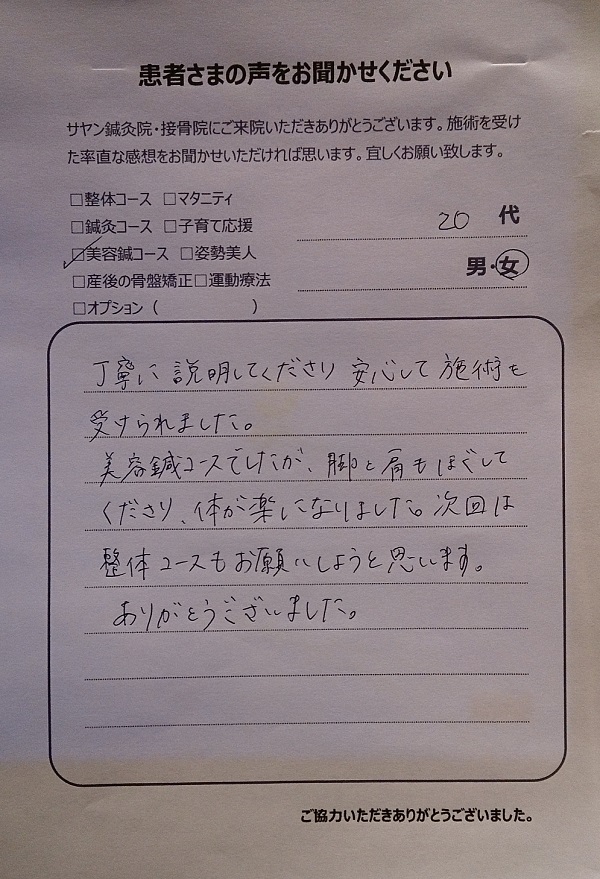 患者さまの声をお聞かせください
サヤン鍼灸院・接骨院にご来院いただきありがとうございます。施術を受け
た率直な感想をお聞かせいただければ思います。宜しくお願い致します。
□整体コース □マタニティ
□鍼灸コース □子育て応援
20 代
☑美容鍼コース □姿勢美人
男・女
□産後の骨盤矯正□運動療法
□オプション（ ）
丁寧に説明してくださり安心して施術を
受けられました。
美容鍼コースでしたが、脚と肩もほぐして
くださり、体が楽になりました。次回は
整体コースもお願いしようと思います。
ありがとうございました。
ご協力いただきありがとうございました。